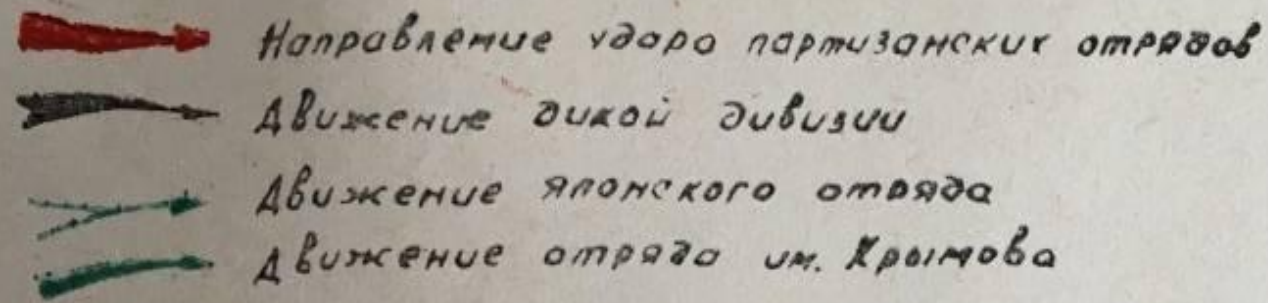 Направление удара партизанских отрядов
Движение дикой дивизии
Движение японского отряда
Движение отряда им. Крымова